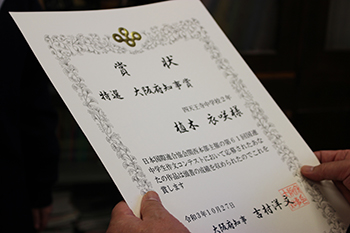 賞状
特選 大阪府知事賞
四天王寺中学校2年
植木 衣咲様
日本国際連合協会関西本部主催の第61回国連
中学生作文コンテストにおいて応募されたあな
たの作品は頭書の成績を収められたのでこれを
賞します
令和3年10月27日
大阪府知事 吉村洋文